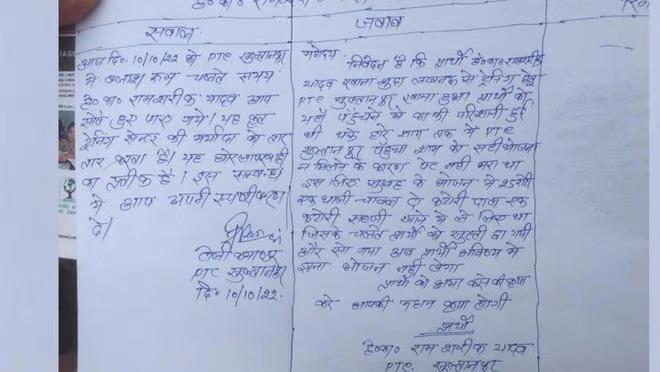 सवाल
आज दि० 10/10/22 को PTC सुल्तानपुर
में क्लास रूम चलते समय
हे०का० रामशरीफ यादव आप
सोते हुए पाए गये। यह कृत
ट्रेनिंग सेन्टर की मर्यादा को तार
तार करता है। यह घोर लापरवाही
का प्रतीक है। इस सम्बन्ध
में आप अपनी स्पष्टीकरण
दे।
PTC सुल्तानपुर
दि० 10/10/22.
जवाब
महोदय
निवेदन है कि प्रार्थी हे०का० रामशरीफ
यादव रवाना शुदा लखनऊ से ट्रेनिंग हेतु
PTC सुल्तानपुर रवाना हुआ प्रार्थी को
यहाँ पहुँचने में काफी परेशानी हुई
PTC
सुल्तानपुर पहुंचा शाम को सही भोजन
न मिलने के कारण पेट नही भरा था
इस लिए सुबह के भोजन में 25 रोटी
एक थाली चावल दो कटोरी दाल एक
कटोरी सब्जी खाने में ले लिया था
जिसके चलते प्रार्थी को सुस्ती हो गयी
और सो गया अब प्रार्थी भविष्य में
इतना भोजन नहीं लेगा
प्रार्थी को क्षमा करने की कृपा
करें आपकी महान कृपा होगी
प्रार्थी
हे०का० राम शरीफ यादव
PTC. सुल्तानपुर